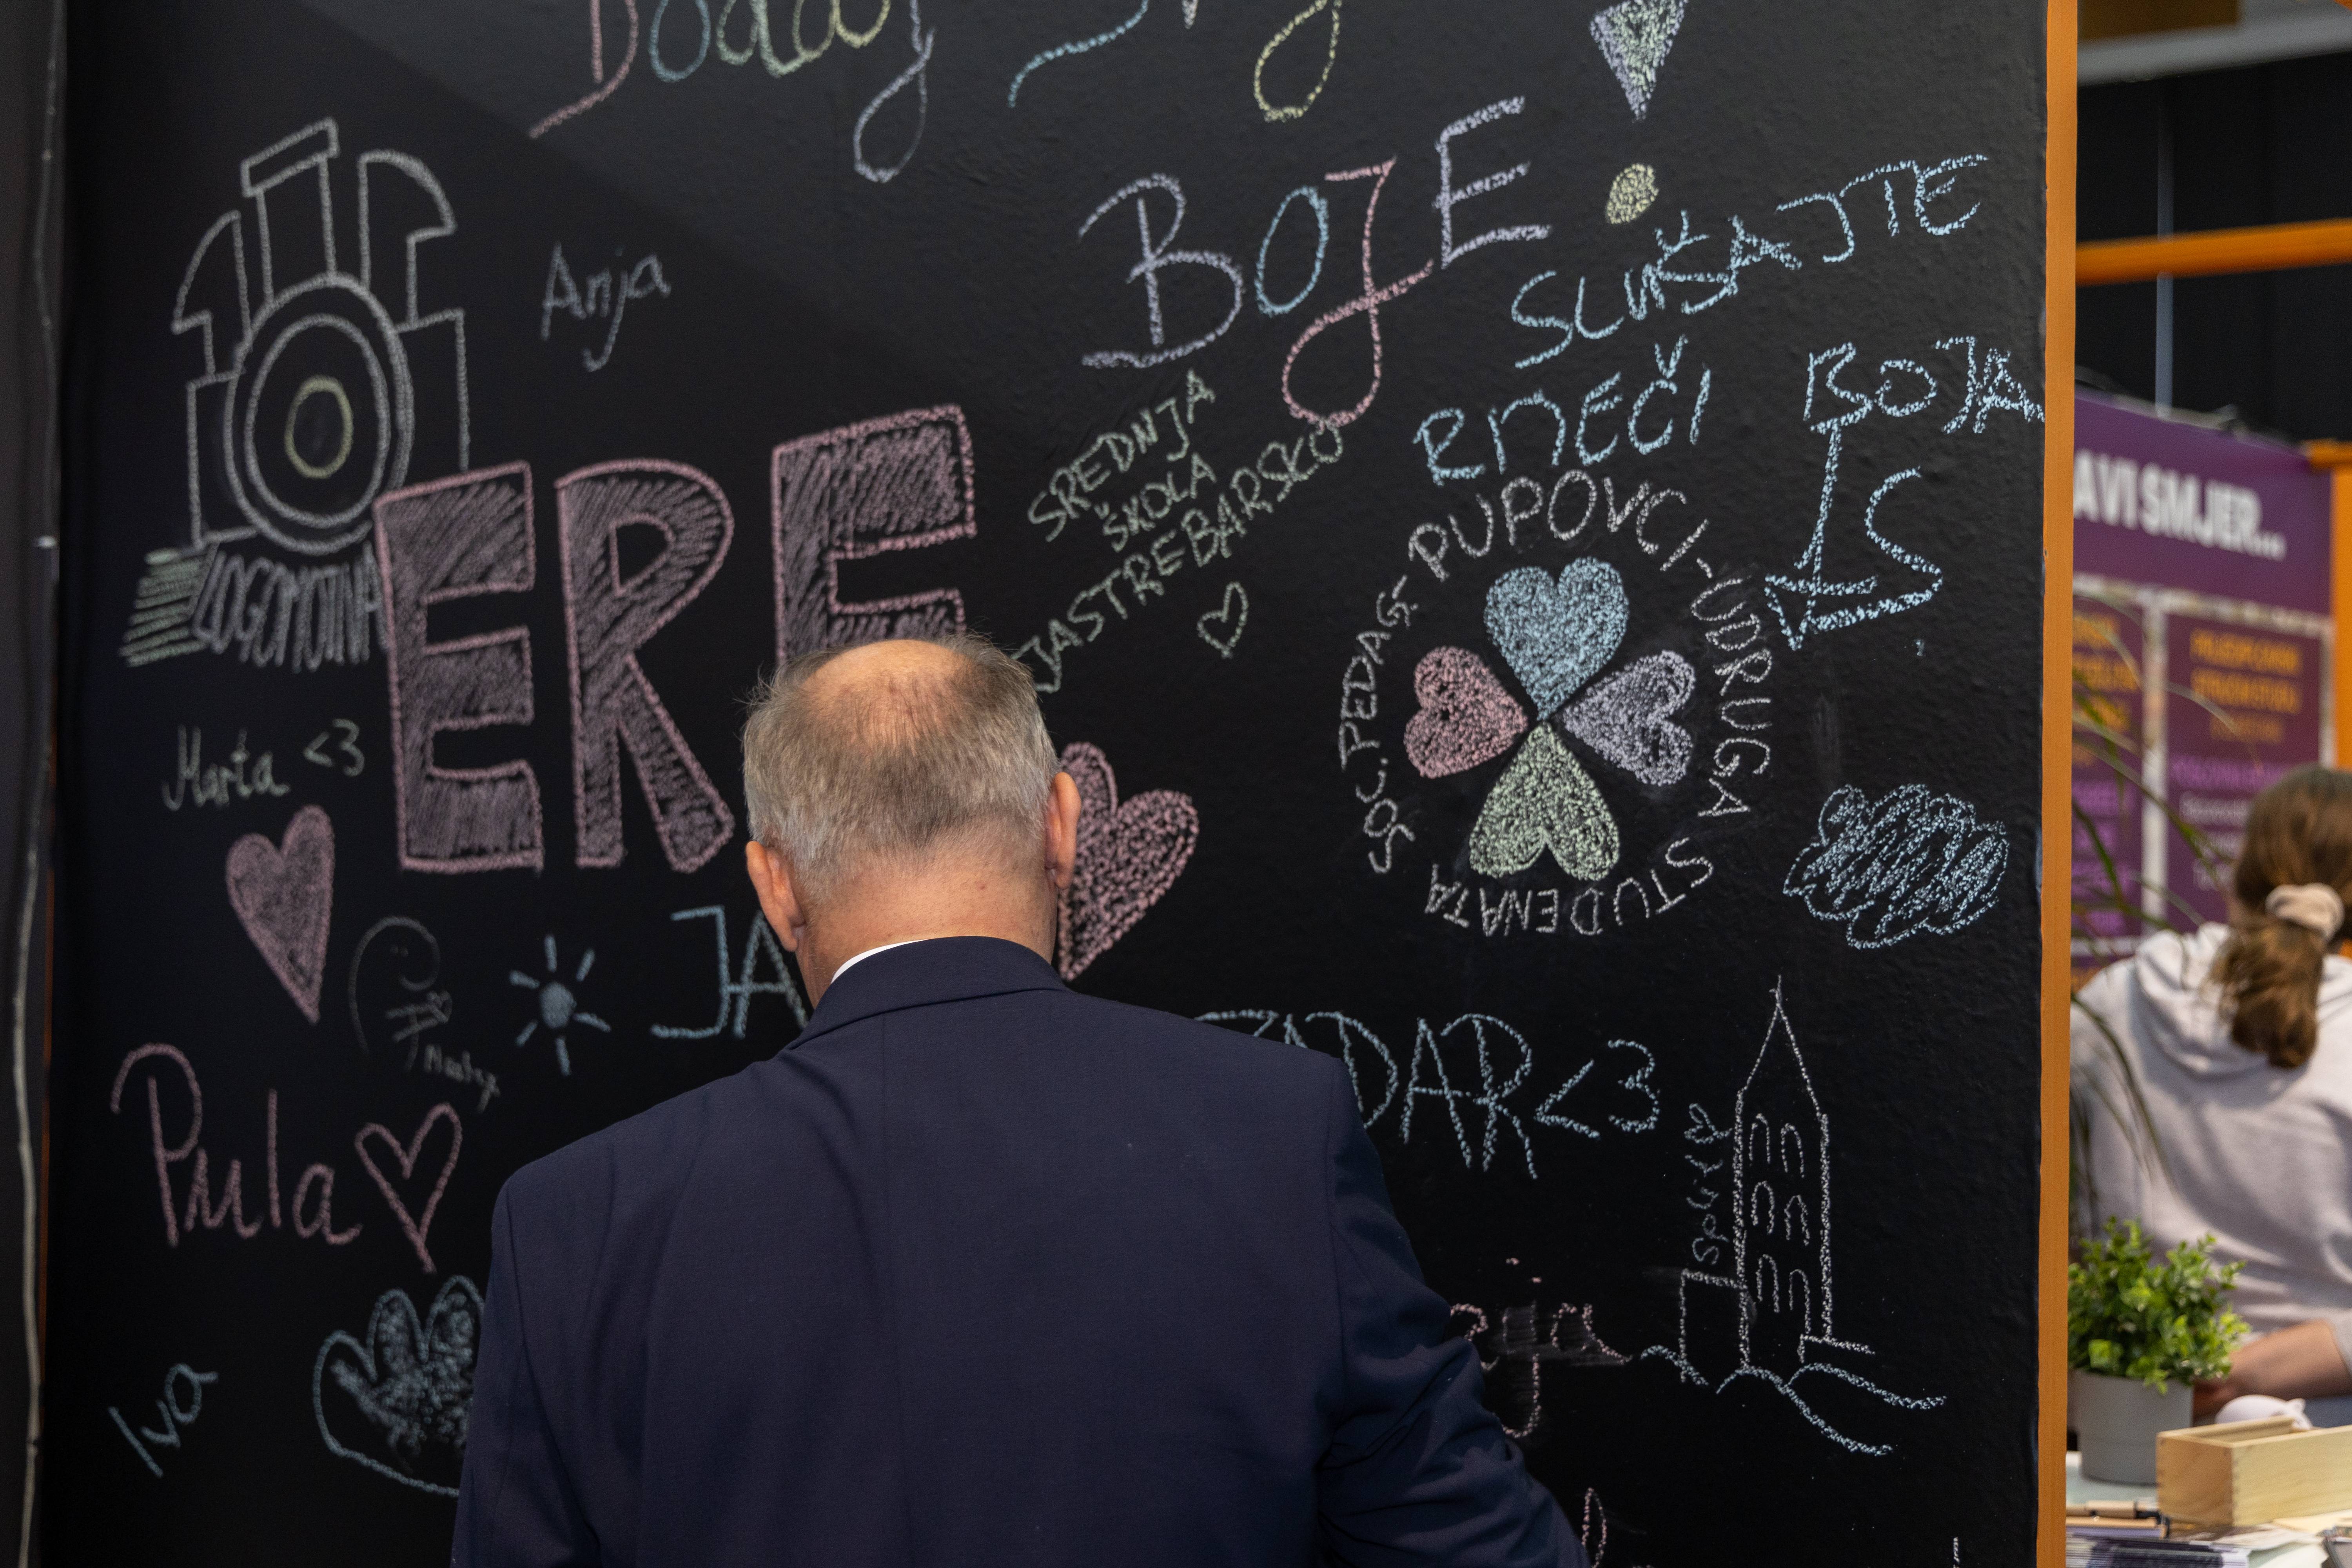 Dodaj
BOJE!
SLUŠAJTE
RIJEČI
BOJA
IS
Anja
SREDNJA
ŠKOLA
JASTREBARSKO
LOGOMOTIVA
ERE
SOC.PEDAG. PUPOVCI-UDRUGA STUDENATA
Marta <3
JA
ZADAR<3
Pula
Split
Iva
AVI SMJER...